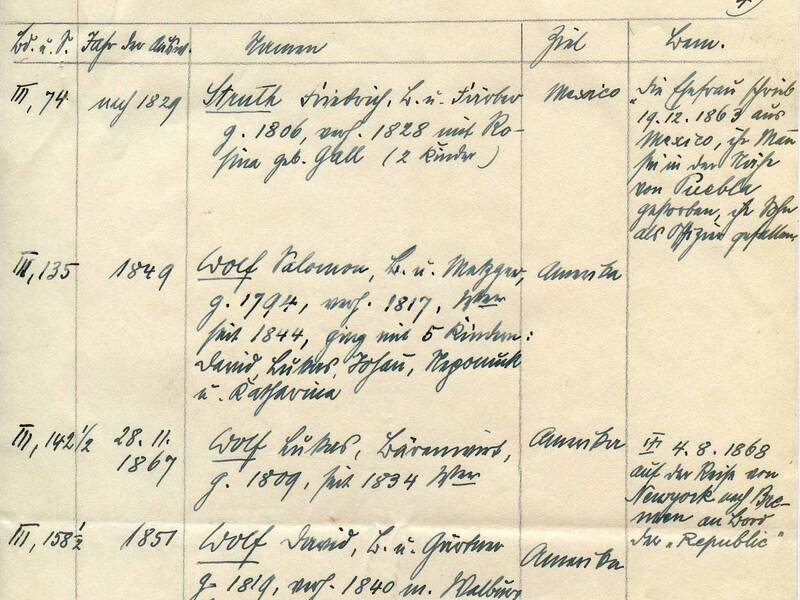 4)
Bd. u. S. Jahr der Ausw. Namen Ziel Bem.
III, 74 nach 1829 Struth Friedrich, B. u. Färber Mexico
g. 1806, verh. 1828 mit Ro-
sina geb. Gall (2 Kinder)
"Die Ehefrau schrieb
19.12.1863 aus
Mexico, ihr Mann
sei in der Nähe
von Puebla
gestorben, ihr Sohn
als Offizier gefallen.
III, 135 1849 Wolf Salomon, B. u. Metzger, Amerika
g. 1794, verh. 1817, Wwer
seit 1844, ging mit 5 Kindern:
David, Lukas, Johan, Nepomuk
u. Katharina
III, 142 1/2 28. 11. 1867 Wolf Lukas, Bärenwirt, Amerika
g. 1809, seit 1834 Wwer
4. 8. 1868
auf der Reise von
Newyork nach Bre-
men an Bord
der "Republic"
III, 158 1/2 1851 Wolf David, B. u. Gärtner Amerika
g. 1819, verh. 1840 m. Walburg